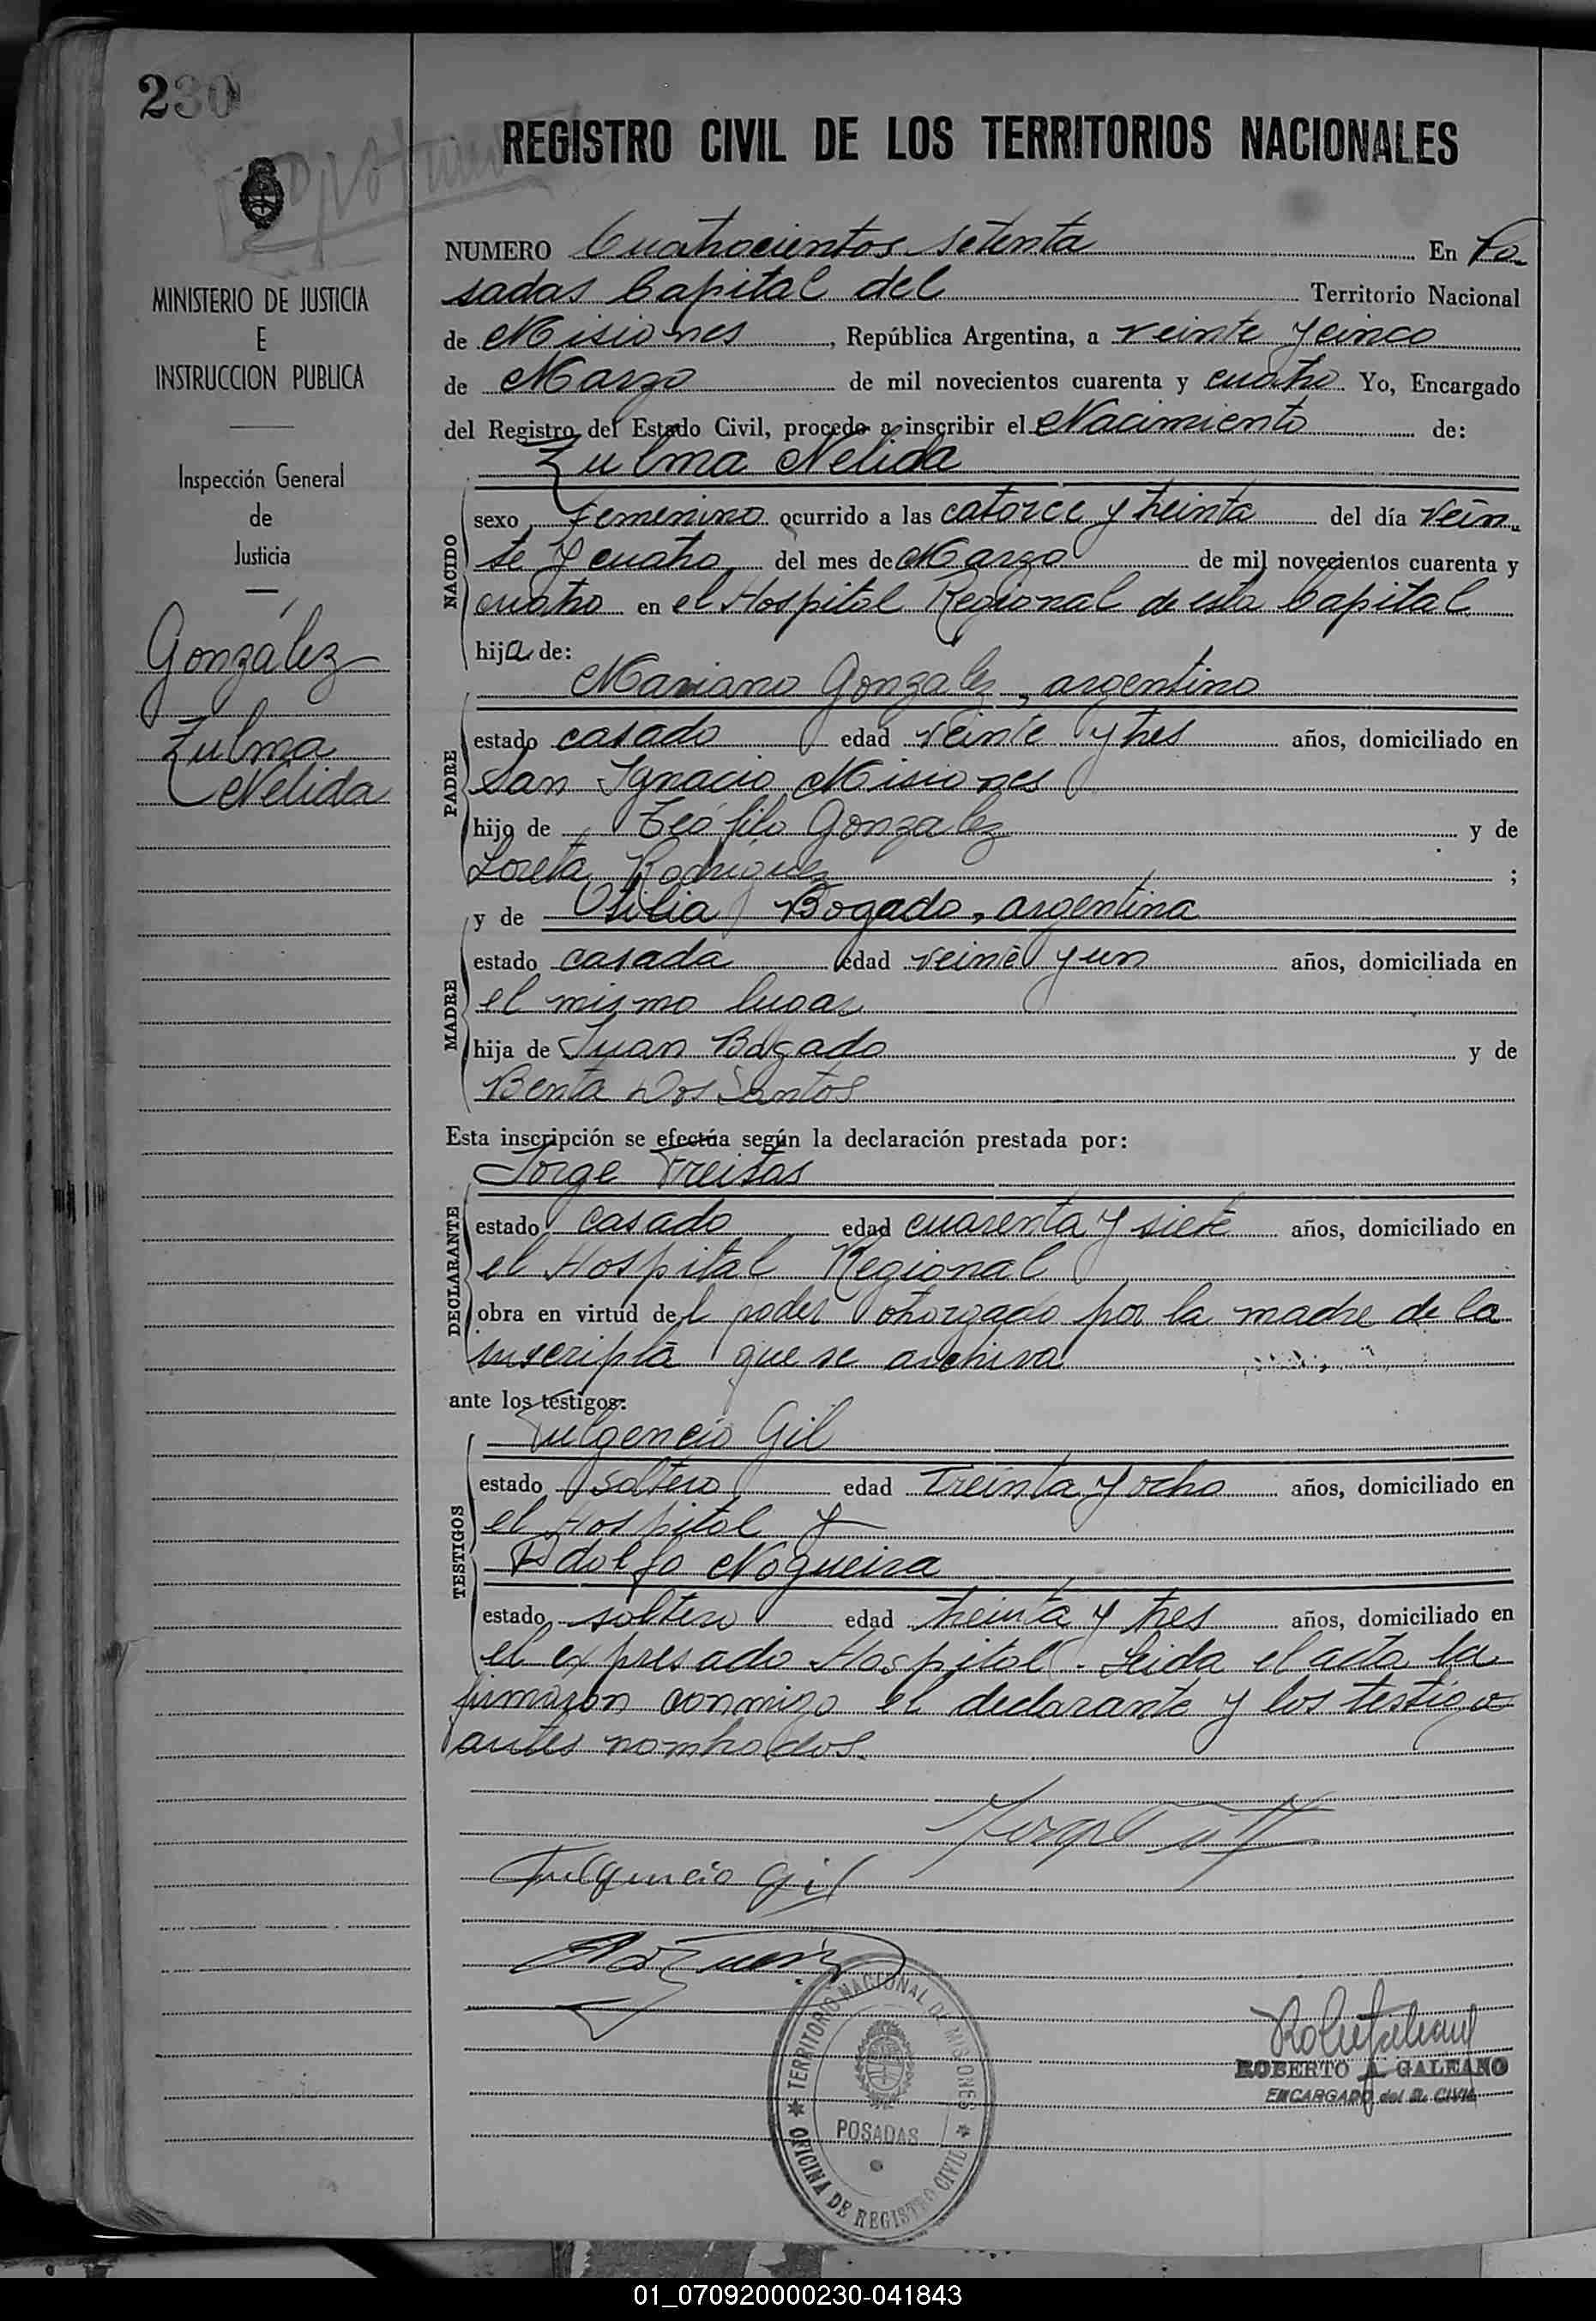 230
REGISTRO CIVIL DE LOS TERRITORIOS NACIONALES
MINISTERIO DE JUSTICIA
E
INSTRUCCION PUBLICA
Inspección General
de
Justicia
González
Zulma
Nelida
NUMERO Cuatrocientos setenta En Po-
sadas Capital del Territorio Nacional
de Misiones, República Argentina, a veinte y cinco
de Marzo de mil novecientos cuarenta y cuatro Yo, Encargado
del Registro del Estado Civil, procedo a inscribir el Nacimiento de:
Zulma Nelida
NACIDO
sexo Femenino ocurrido a las catorce y treinta del día vein-
te y cuatro del mes de Marzo de mil novecientos cuarenta y
cuatro en el Hospital Regional de esta Capital
hija de:
Mariano Gonzalez, argentino
PADRE
estado casado edad veinte y tres años, domiciliado en
San Ignacio Misiones
hijo de Teófilo Gonzalez y de
Loreta Rodriguez ;
y de Otilia Bogado, argentina
MADRE
estado casada edad veinte y un años, domiciliada en
el mismo lugar
hija de Juan Bogado y de
Benta Dos Santos
Esta inscripción se efectúa según la declaración prestada por:
Jorge Freitas
DECLARANTE
estado casado edad cuarenta y siete años, domiciliado en
el Hospital Regional
obra en virtud del poder otorgado por la madre de la
inscripta que se archiva
ante los testigos:
Fulgencio Gil
TESTIGOS
estado soltero edad Treinta y ocho años, domiciliado en
el Hospital y
Adolfo Nogueira
estado soltero edad treinta y tres años, domiciliado en
el expresado Hospital. Leida el acta la
firmaron conmigo el declarante y los testigos
antes nombrados.
Fulgencio Gil
TERRITORIO NACIONAL DE MISIONES
POSADAS
OFICINA DE REGISTRO CIVIL
ROBERTO A. GALEANO
ENCARGADO del R. CIVIL
01_070920000230-041843